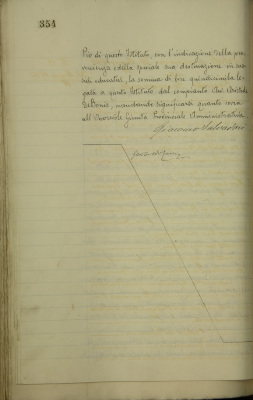 354
Pio di questo Istituto, con l'indicazione della pro
venienza e della speciale sua destinazione in
la somma di lire quindicimila le
gata a questo Istituto dal compianto Cav. Aristide
mandando significarsi quanto sovra
all'Onorevole Giunta Provinciale Amministrativa
Giacomo